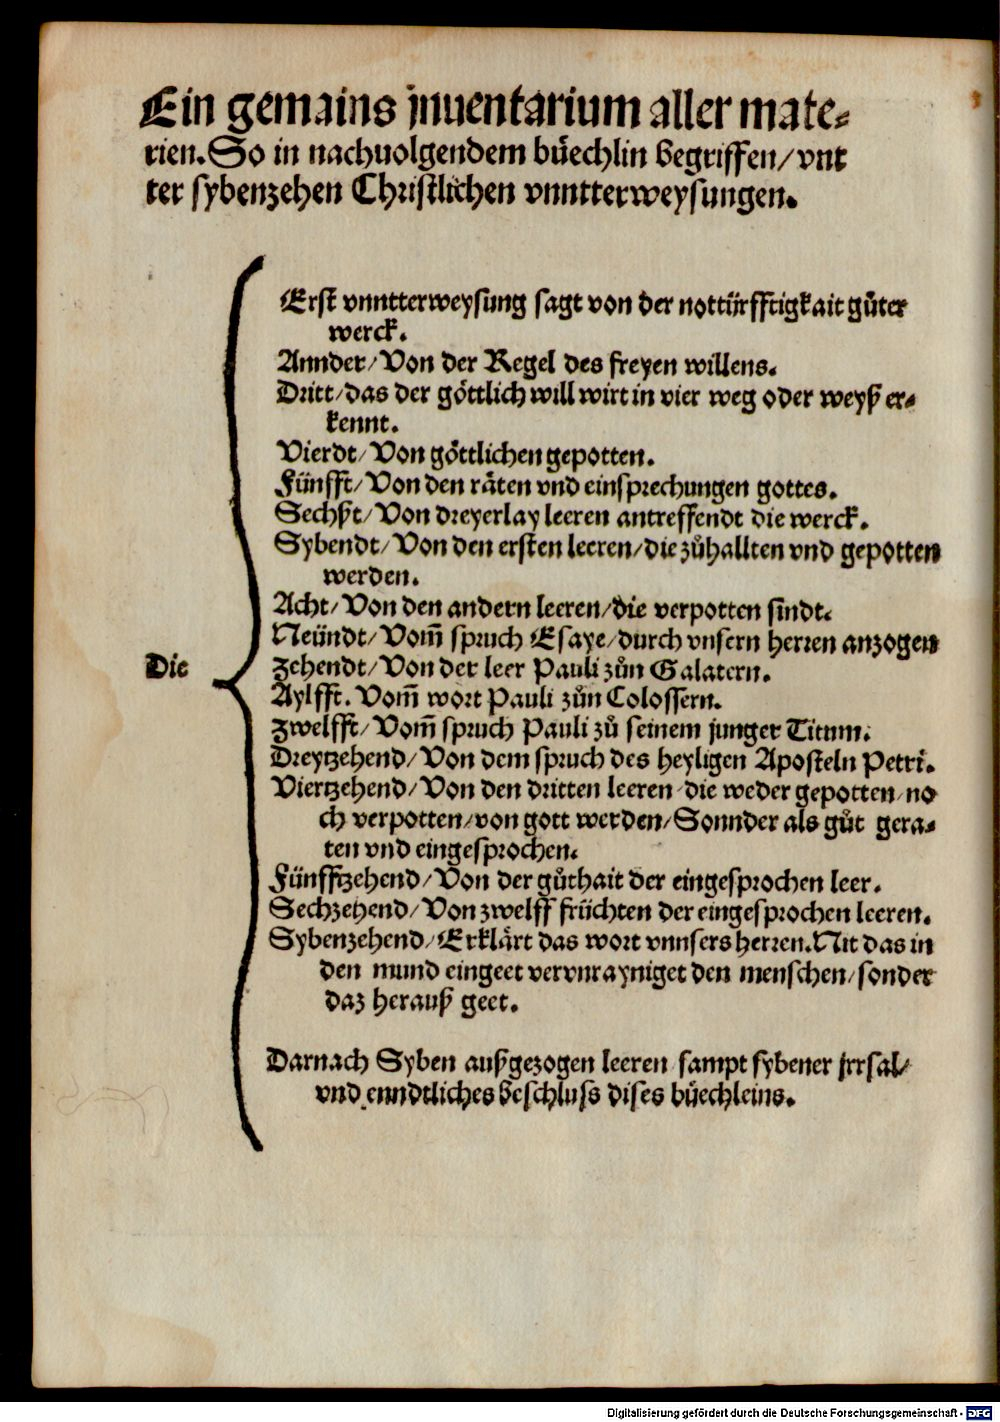 Ein gemains jnuentarium aller mate⸗
rien. So in nachuolgendem buͤechlin begriffen/ vnt
ter sybenzehen Christlichen vnntterweysungen.
Erst vnntterweysung sagt von der nottürfftigkait guͦter
werck.
Annder/ Von der Regel des freyen willens.
Dritt/ das der göttlich will wirt in vier weg oder weyß er⸗
kennt.
Vierdt/ Von göttlichen gepotten.
Fünfft/ Von den räten vnd einsprechungen gottes.
Sechßt/ Von dreyerlay leeren antreffendt die werck.
Sybendt/ Von den ersten leeren/ die zuͦhallten vnd gepotten
werden.
Acht/ Von den andern leeren/ die verpotten sindt.
Neündt/ Vom̄ spruch Esaye/ durch vnsern herren anzogen
Die
Zehendt/ Von der leer Pauli zuͦn Galatern.
Aylfft. Vom̄ wort Pauli zuͦn Colossern.
Zwelfft/ Vom̄ spruch Pauli zuͦ seinem junger Titum.
Dreytzehend/ Von dem spruch des heyligen Aposteln Petri.
Viertzehend/ Von den dritten leeren/ die weder gepotten/ no
ch verpotten/ von gott werden/ Sonnder als guͦt gera⸗
ten vnd eingesprochen.
Fünfftzehend/ Von der guͦthait der eingesprochen leer.
Sechzehend/ Von zwelff früchten der eingesprochen leeren.
Sybenzehend/ Erklärt das wort vnnsers herren. Nit das in
den mund eingeet vervnrayniget den menschen/ sonder
daz herauß geet.
Darnach Syben außgezogen leeren sampt sybener jrrsal/
vnd enndtliches beschluss dises buͤechleins.
Digitalisierung gefördert durch die Deutsche Forschungsgemeinschaft - DFG